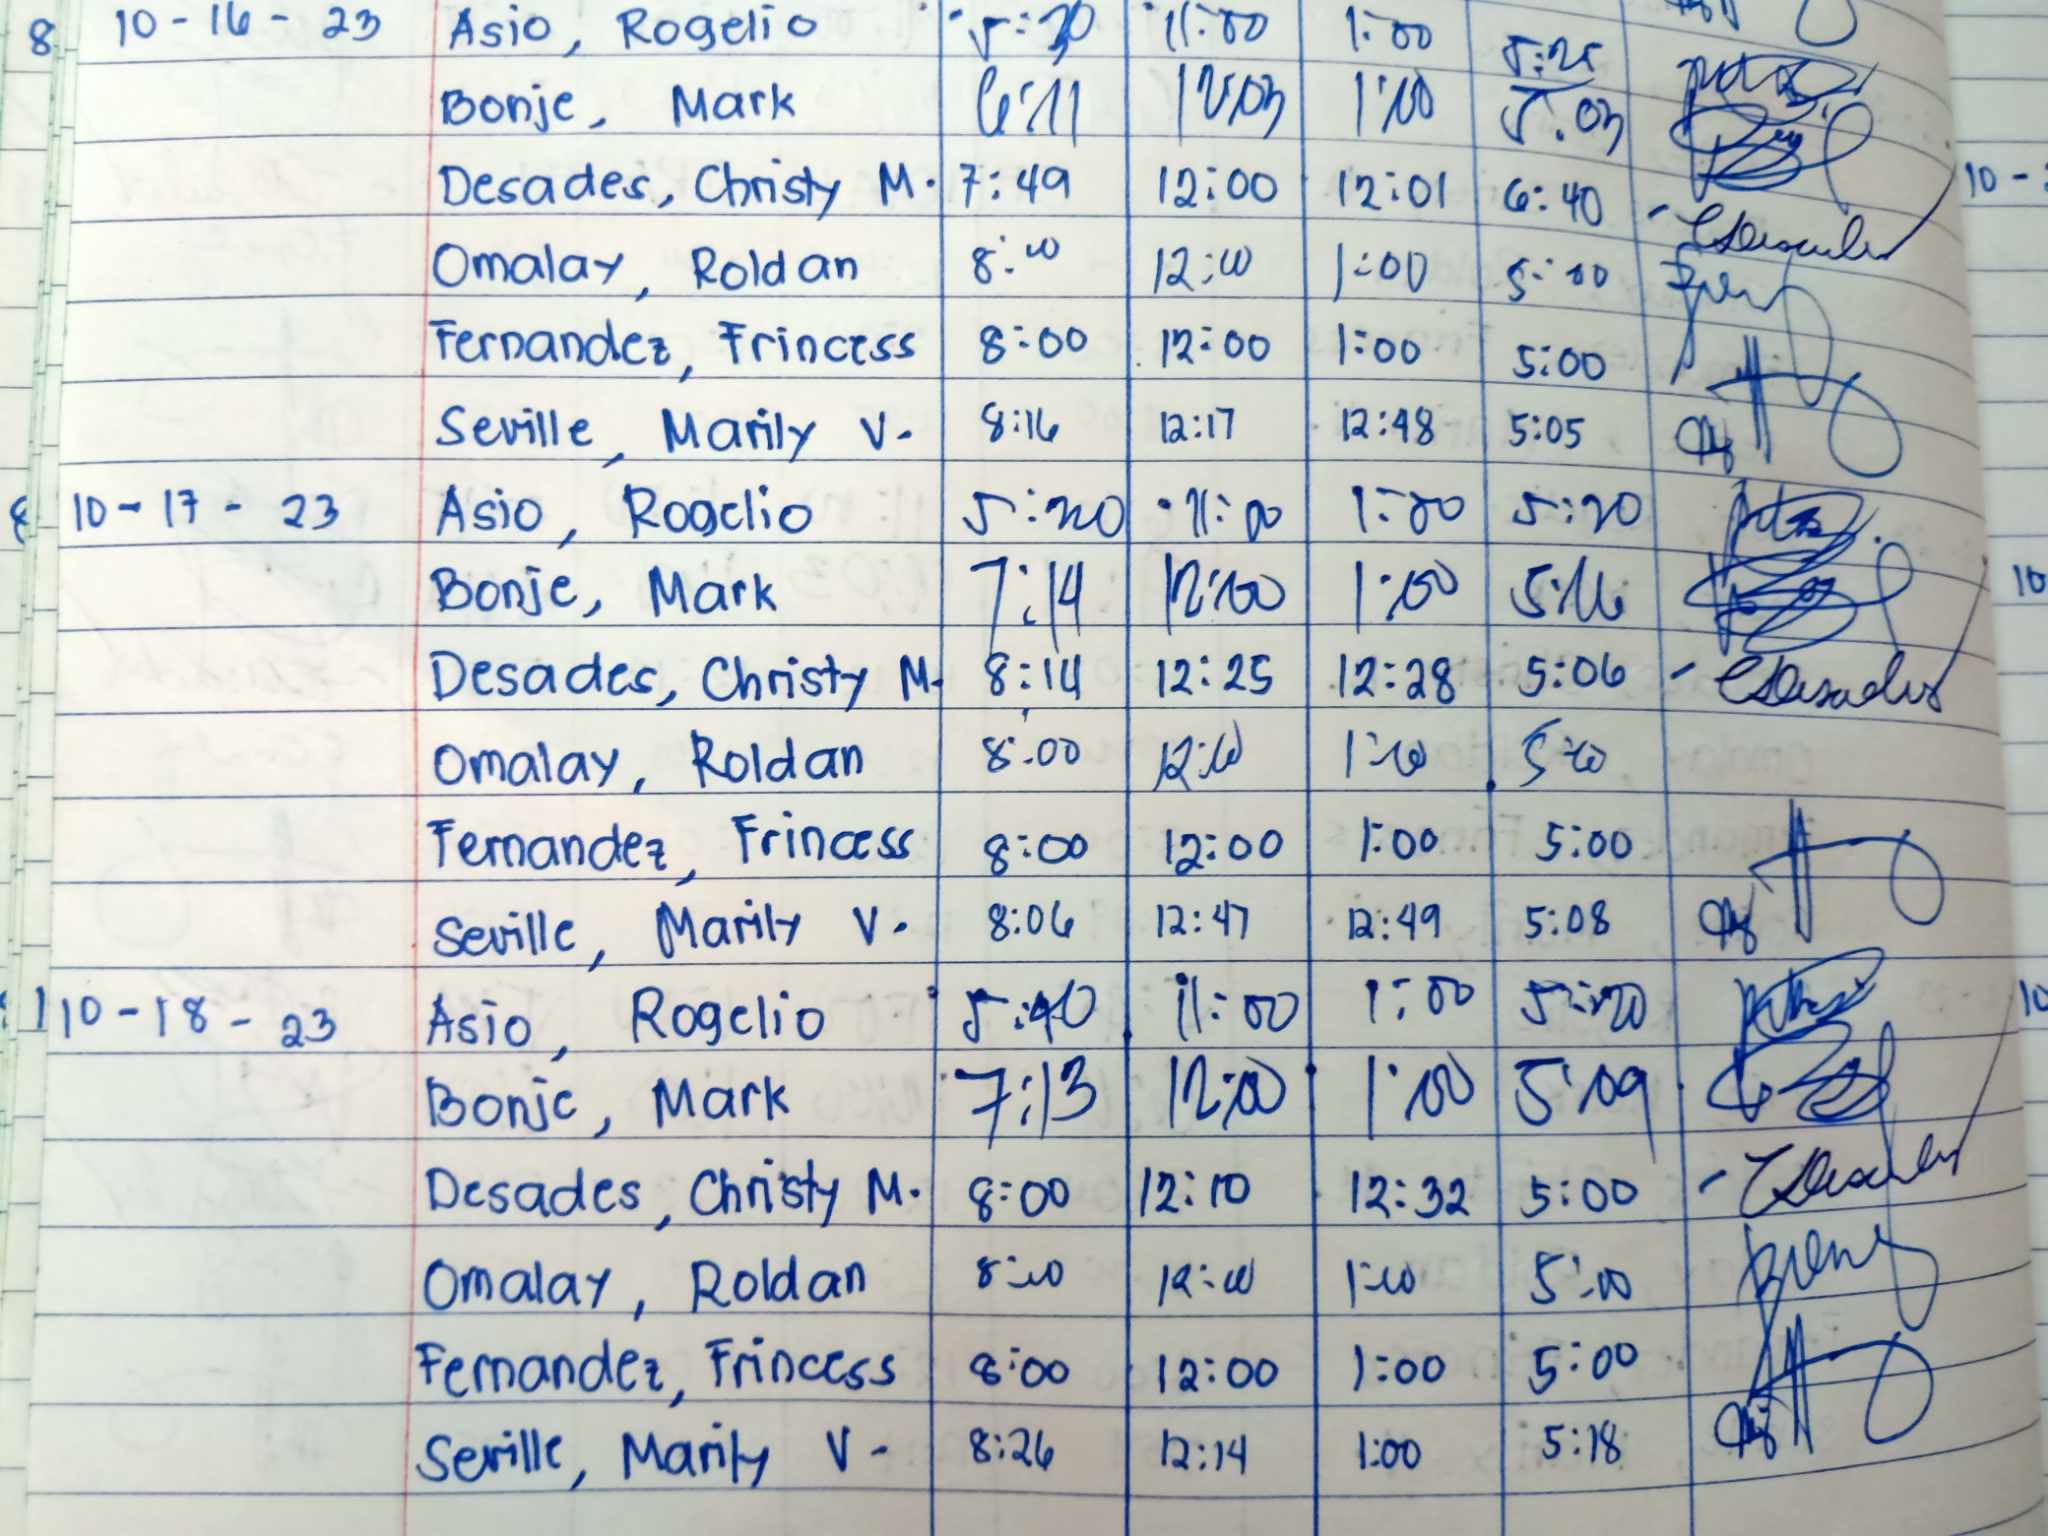 8 10-16-23 Asio, Rogelio 5:20 11:00 1:00 5:25
Bonje, Mark 6:11 12:03 1:00 5:03
Desades, Christy M. 7:49 12:00 12:01 6:40
Omalay, Roldan 8:00 12:00 1:00 5:00
Fernandez, Frincess 8:00 12:00 1:00 5:00
Seville, Marily V. 8:16 12:17 12:48 5:05
10-17-23 Asio, Rogelio 5:20 11:00 1:00 5:20
Bonje, Mark 7:14 12:00 1:00 5:16
Desades, Christy M. 8:14 12:25 12:28 5:06
Omalay, Roldan 8:00 12:00 1:00 5:00
Fernandez, Frincess 8:00 12:00 1:00 5:00
Seville, Marily V. 8:06 12:47 12:49 5:08
10-18-23 Asio, Rogelio 5:40 11:00 1:00 5:20
Bonje, Mark 7:13 12:00 1:00 5:09
Desades, Christy M. 8:00 12:10 12:32 5:00
Omalay, Roldan 8:00 12:00 1:00 5:00
Fernandez, Frincess 8:00 12:00 1:00 5:00
Seville, Marily V. 8:26 12:14 1:00 5:18